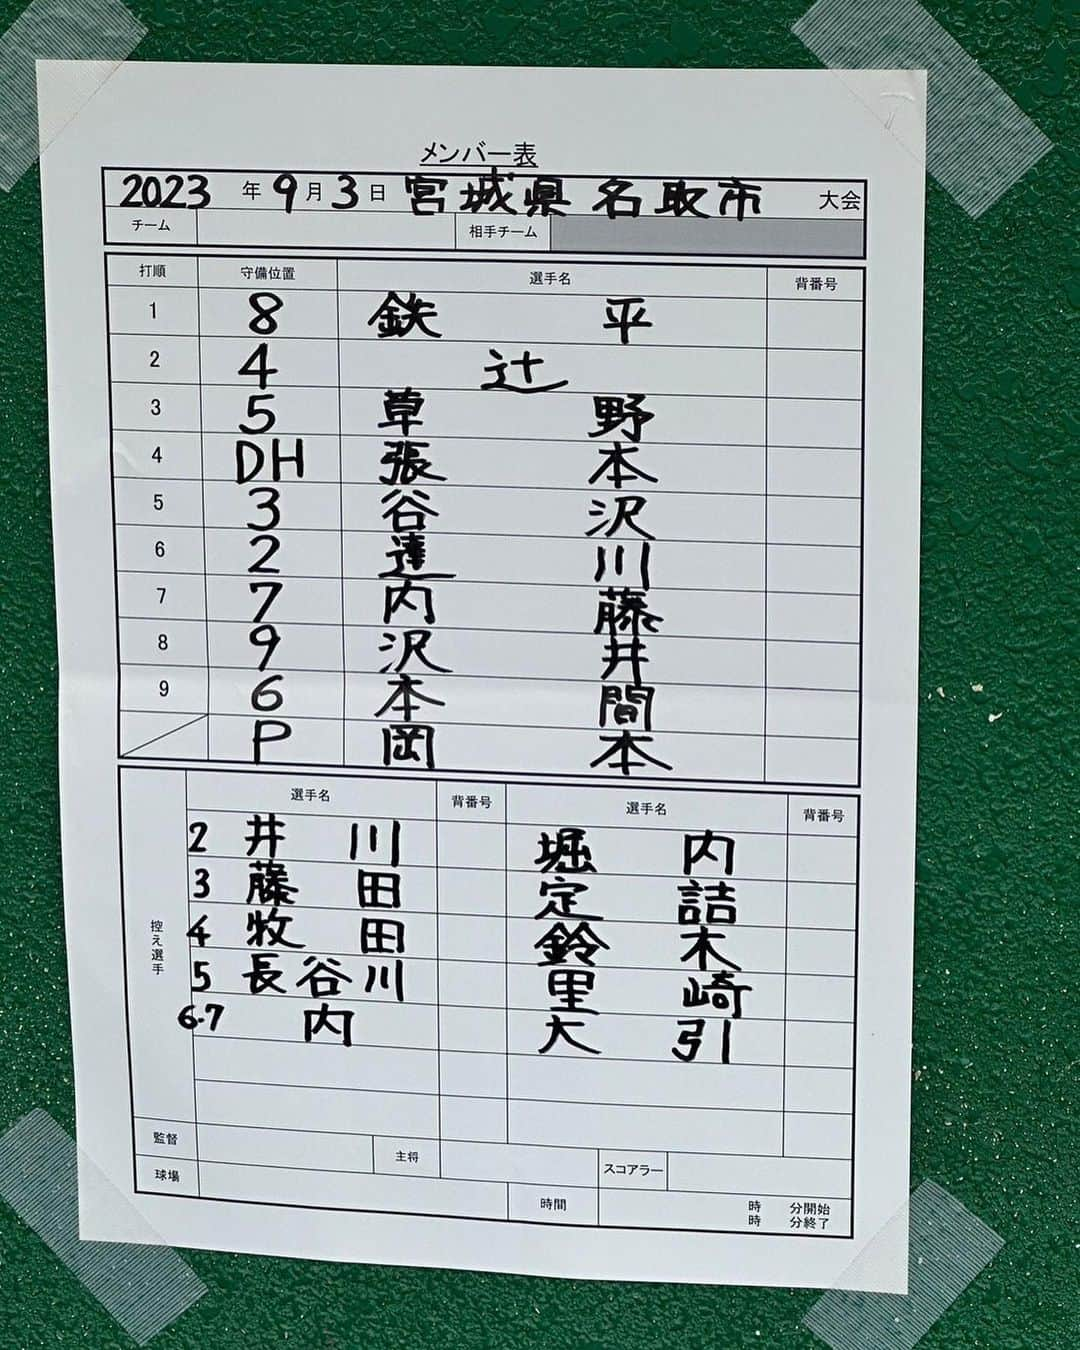 メンバー表
2023 年 9 月 3 日 宮城県 名取市 大会
チーム 相手チーム
打順 守備位置 選手名 背番号
1 8 鉄 平
2 4 辻
3 5 草 野
4 DH 張 本
5 3 谷 沢
6 2 達 川
7 7 内 藤
8 9 沢 井
9 6 本 間
P 岡 本
控え選手
選手名 背番号 選手名 背番号
2 井 川 堀 内
3 藤 田 定 詰
4 牧 田 鈴 木
5 長谷川 里 崎
6.7 内 大 引
監督 主将 スコアラー
球場 時間 時 分開始
時 分終了